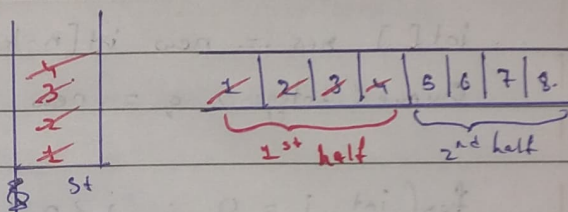 4
3
2
1
st
1 | 2 | 3 | 4 | 5 | 6 | 7 | 8
1st half
2nd half